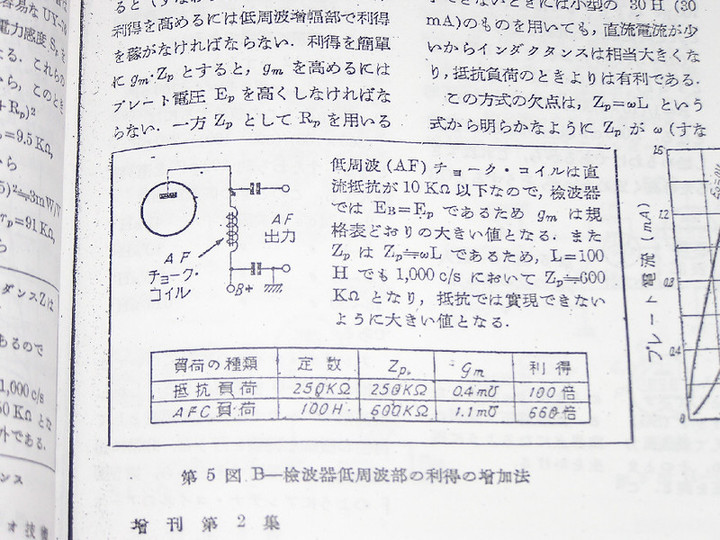 容易な UX-
電力感度 S
なる. これらの
から, このとき
+Rₚ)²
=9.5 KΩ,
ら
rₚ=91 KΩ,
ら
ダンス Z は
あるので
1,000 c/s
50 KΩ とな
外である.
ンス
オ技
ると (すなわ
利得を高めるには低周波増幅部で利得
を稼がなければならない. 利得を簡單
に gₘ·Zₚ とすると, gₘ を高めるには
プレート電圧 Eₚ を高くしなければな
らない. 一方 Zₚ として Rₚ を用いる
できないときには小型の 30 H (30
mA)のものを用いても, 直流電流が少
いからインダクタンスは相当大きくな
り, 抵抗負荷のときよりは有利である.
この方式の欠点は, Zₚ=ωL という
式から明らかなように Zₚ が ω (すな
AF
出力
AF
チョーク・
コイル
B+
低周波 (AF) チョーク・コイルは直
流抵抗が 10 KΩ 以下なので, 檢波器
では E_B=Eₚ であるため gₘ は規
格表どおりの大きい値となる. また
Zₚ は Zₚ≒ωL であるため, L=100
H でも 1,000 c/s において Zₚ≒600
KΩ となり, 抵抗では實現できない
ように大きい値となる.
負荷の種類 定数 Zₚ gₘ 利得
抵抗負荷 250KΩ 250KΩ 0.4m℧ 100倍
AFC負荷 100H 600KΩ 1.1m℧ 660倍
第5図 B—檢波器低周波部の利得の増加法
増刊第2集
プレート電流 (mA)
1.6
1.2
0.4
0